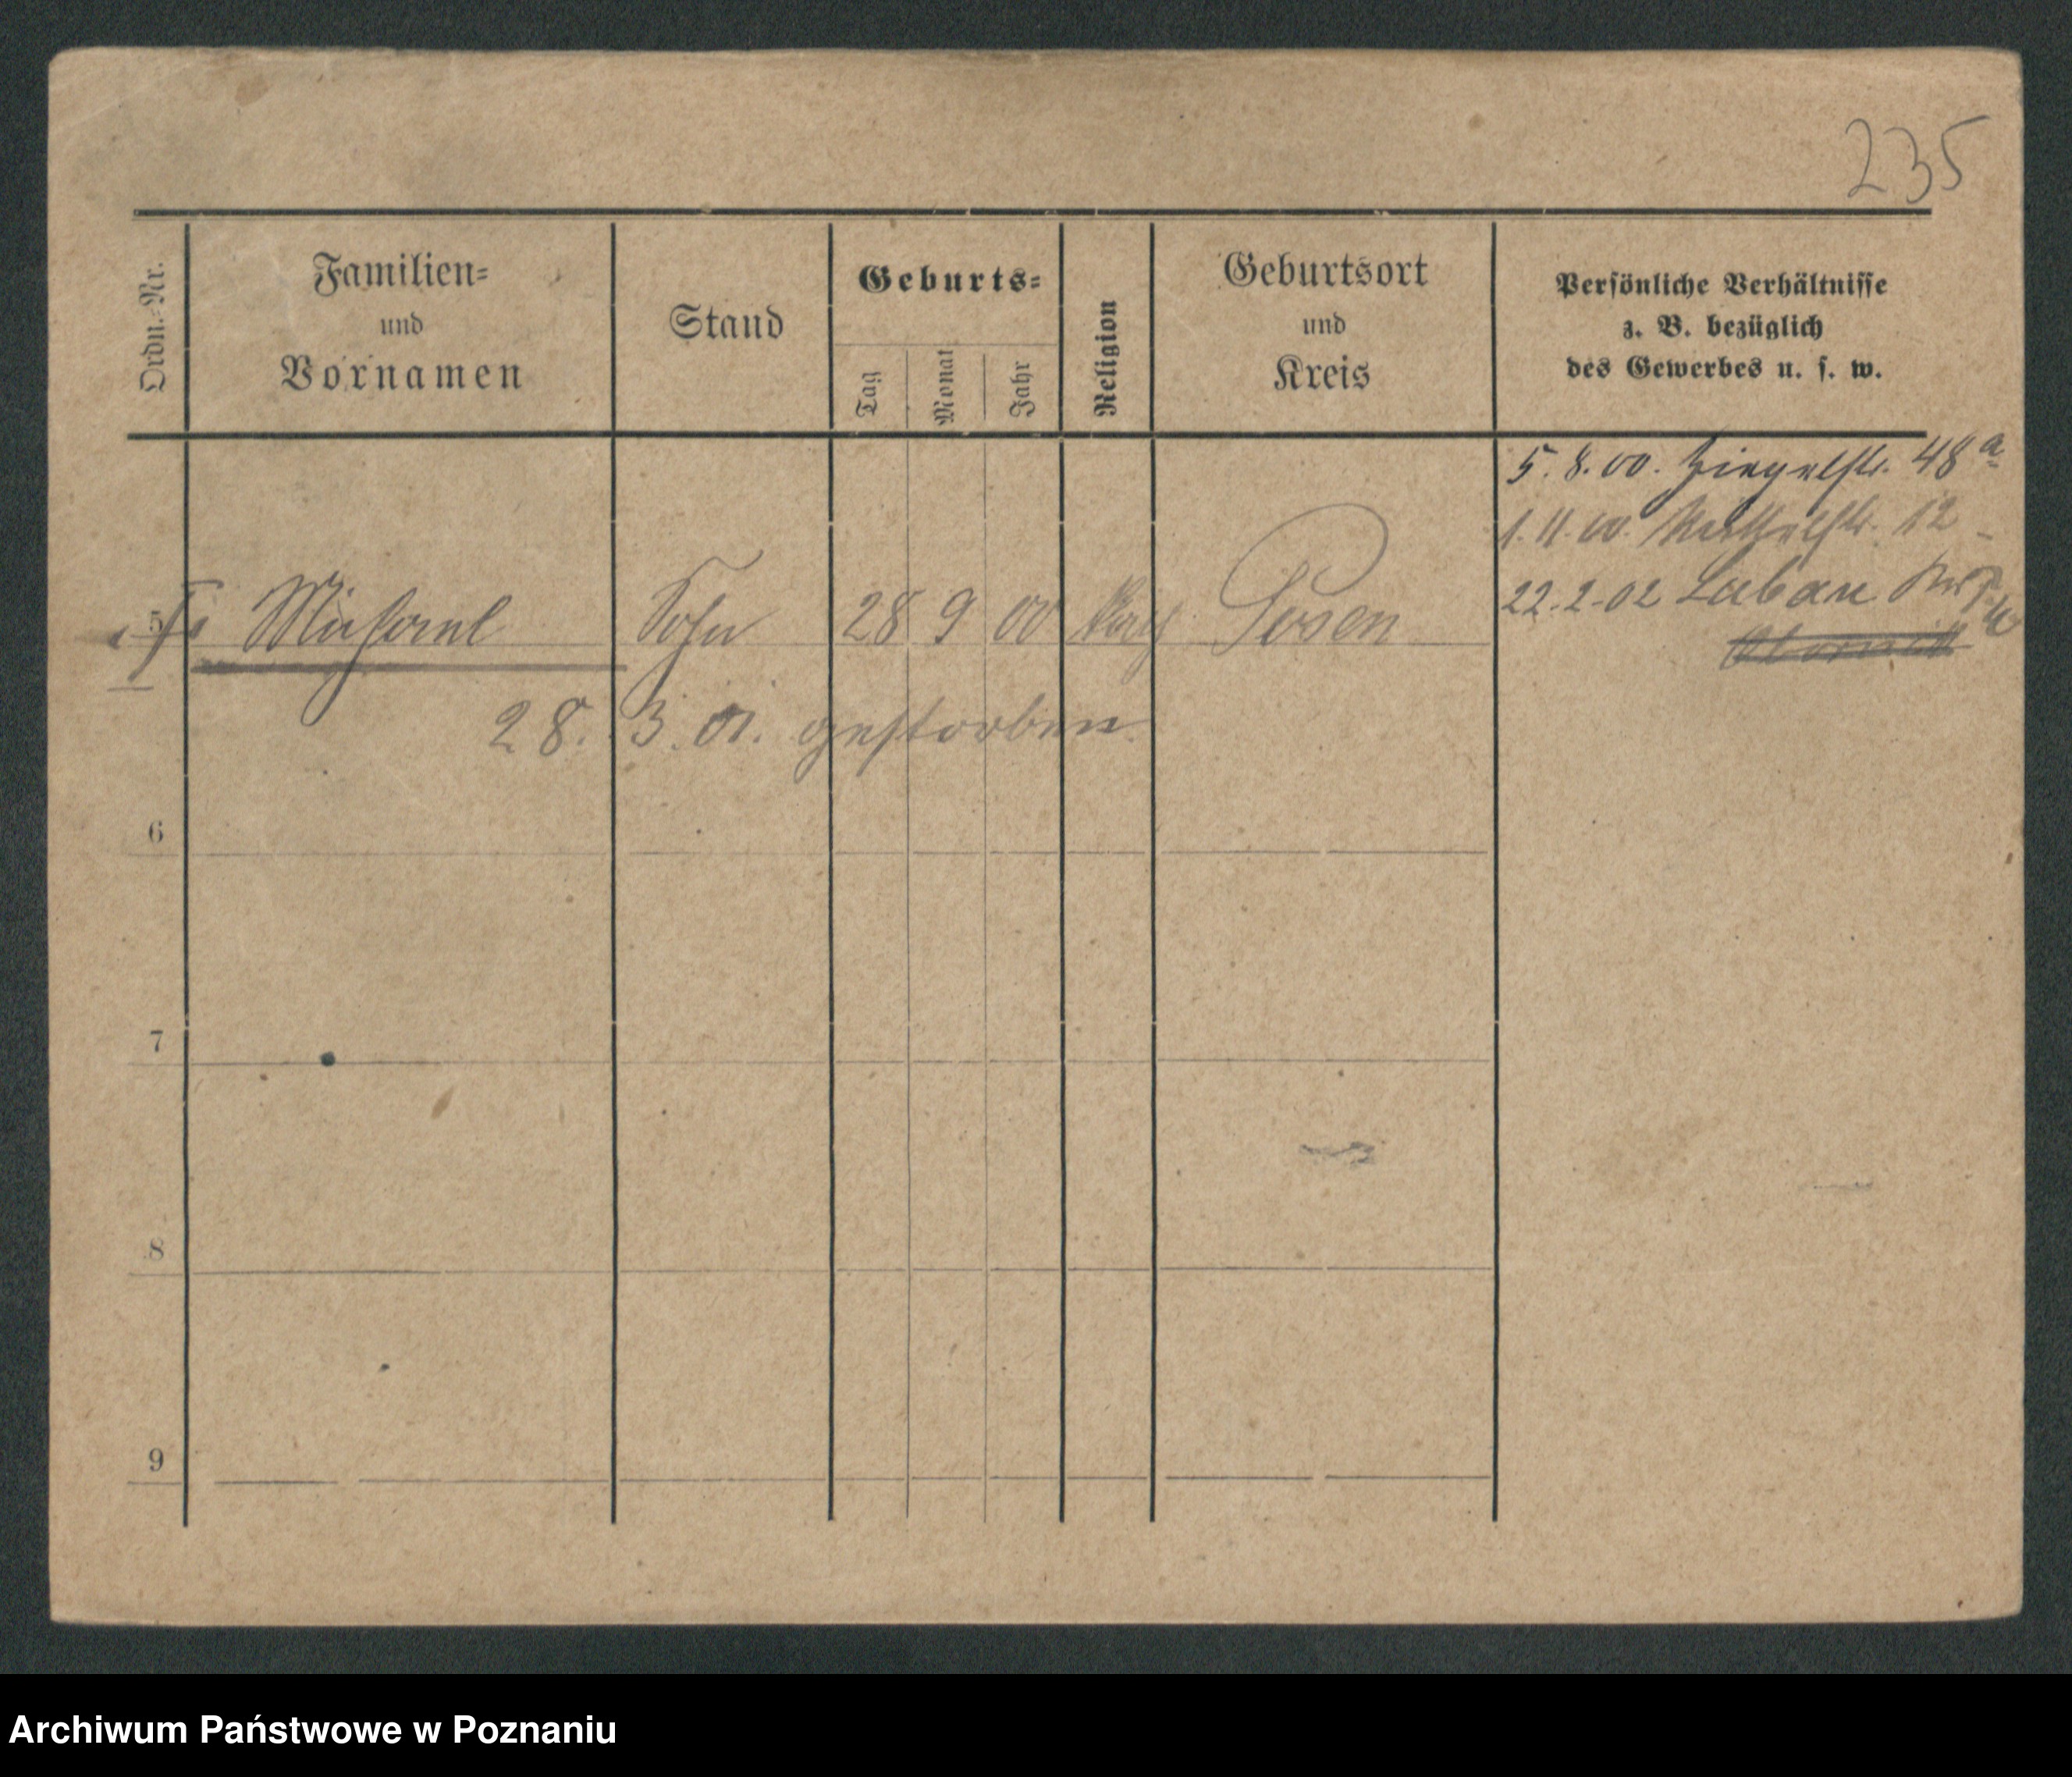 235
Ordn.-Nr.
Familien-
und
Vornamen
Stand
Geburts-
Tag
Monat
Jahr
Religion
Geburtsort
und
Kreis
Persönliche Verhältnisse
z. B. bezüglich
des Gewerbes u. s. w.
5. 8. 00. Ziegelstr. 48a
1. 11. 00. 12
22. 2. 02 Luban
5 Michael Sohn 28 9 00 Posen
28. 3. 01. gestorben.
6
7
8
9
Archiwum Państwowe w Poznaniu